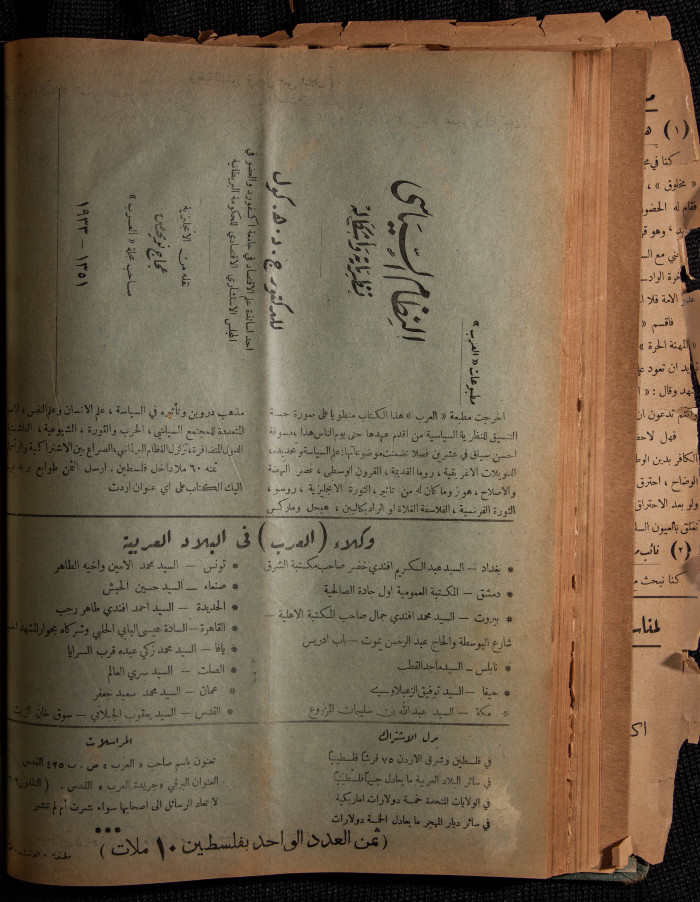 مطبوعات « العرب »
النظام السياسي
نظرياته وأشكاله
للدكتور ج . د . ه . كول
احد اساتذة علم الاقتصاد في جامعة اكسفورد والعضو في
المجلس الاستشاري الاقتصادي للحكومة البريطانية
نقله من الانجليزية
عجاج نويهض
صاحب مجلة « العرب »
١٣٥١ – ١٩٣٣
اخرجت مطبعة « العرب » هذا الكتاب منطويا على صورة حسنة
التنسيق للنظرية السياسية من اقدم عهدها حتى يوم الناس هذا ، مسوقة
احسن سياق في عشرين فصلا تضمنت موضوعاتها: علم السياسة وتحديده،
الدويلات الاغريقية ، روما القديمة ، القرون الوسطى ، عصر النهضة
والاصلاح ، هوبز وما كان له من تأثير ، الثورة الانجليزية ، روسو ،
الثورة الفرنسية ، الفلاسفة الغلاة او الراديكاليين ، هيجل وماركس
مذهب دروين وتأثيره في السياسة ، علم الانسان وعلم النفس ،
المتعددة للمجتمع السياسي ، الحرب والثورة ، الشيوعية ، الفاشستية
الدول المتضافرة ، تزلزل النظام البرلماني ، الصراع بين الاشتراكية
ثمنه ٦٠ ملا داخل فلسطين . ارسل الثمن طوابع بريد
اليك الكتاب على اي عنوان اردت
وكلاء ( العرب ) في البلاد العربية
* بغداد – السيد عبد الكريم افندي خضر صاحب مكتبة الشرق
* دمشق – المكتبة العمومية اول جادة الصالحية
* بيروت – السيد محمد افندي جمال صاحب المكتبة الاهلية –
شارع البوسطة والحاج عبد الرحمن بموت – باب ادريس
* نابلس – السيد ماجد القطب
* حيفا – السيد توفيق الزعبلاوي
* مكة – السيد عبد الله بن سليمان المزروع
* تونس – السيد محمد الامين واخيه الطاهر
* صنعاء – السيد حسين الحبشي
* الحديدة – السيد احمد افندي طاهر رجب
* القاهرة – السادة عيسى البابي الحلبي وشركاه بجوار المشهد
* يافا – السيد محمد زكي عبده قرب السرايا
* الصلت – السيد سري العالم
* عمان – السيد محمد سعيد جعفر
* القدس – السيد يعقوب الجيلاني – سوق خان الزيت
بدل الاشتراك
في فلسطين وشرق الاردن ٧٥ قرشا فلسطينيا
في سائر البلاد العربية ما يعادل جنيها فلسطينيا
في الولايات المتحدة خمسة دولارات اميركية
في سائر ديار المهجر ما يعادل الخمسة دولارات
المراسلات
تعنون باسم صاحب « العرب » ص . ب ٤٢٥ القدس
العنوان البرقي « جريدة العرب » القدس .
لا تعاد الرسائل الى اصحابها سواء نشرت ام لم تنشر
( ثمن العدد الواحد بفلسطين ١٠ ملات )
( ١ )
كنا في
« مخلوق » ،
فقام له الحضور
فاقسم
« المهنة الحرة »
يد ان تعود
وقال : «
الكافر بدين
الوضاح ، احترق
ولو بعد الاحتراق
( ٢ ) نائب
كنا نبحث